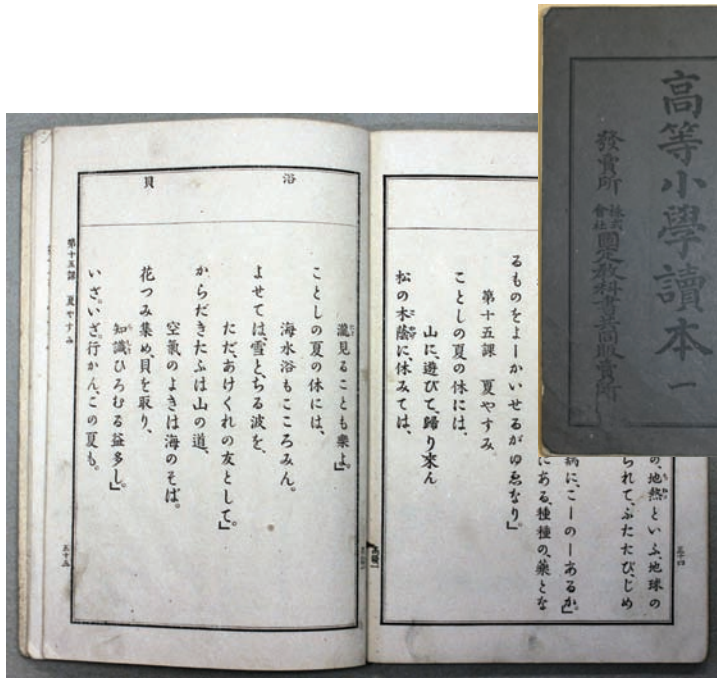 高等小學讀本 一
發賣所 株式會社 國定教科書共同販賣所
五十四
の、地熱といふ、地球の
られて、ふたたび、じめ
病に、こーのーあるか。」
にある、種種の、藥とな
るものをよーかいせるがゆゑなり」
第十五課 夏やすみ
ことしの夏の休には、
山に、遊びて、歸り來ん
松の木蔭に、休みては、
浴
貝
瀧見ることも樂よ。」
ことしの夏の休には、
海水浴もこころみん。
よせては、雪と、ちる波を、
ただ、あけくれの友として」
からだきたふは山の道、
空氣のよきは海のそば。
花つみ集め、貝を取り、
知識ひろむる益多し」
いざ、いざ、行かん、この夏も。
第十五課 夏やすみ
五十五